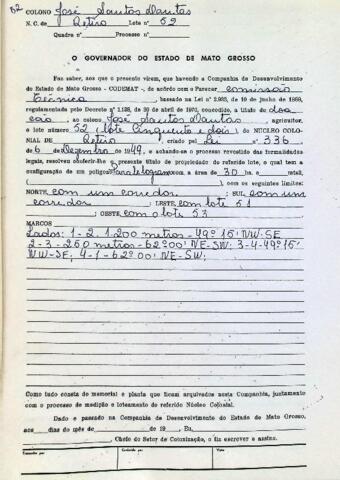 62
COLONO José Santos Dantas
N. C. de Retiro Lote nº 52
Quadra nº Processo nº
O GOVERNADOR DO ESTADO DE MATO GROSSO
Faz saber, aos que o presente virem, que havendo a Companhia de Desenvolvimento
do Estado de Mato Grosso - CODEMAT -, de acôrdo com o Parecer comissão
técnica, baseado na Lei
regulamentada pelo Decreto nº 1.138, de 30 de abril de 1970, concedido, a título de doa
ção, ao colono José Santos Dantas, agricultor,
o lote número 52 (lote cinquenta e dois) do NÚCLEO COLO-
NIAL DE Retiro, criado pel Lei nº 336
de 6 de Dezembro de 1949, e achando-se o processo revestido das formalidades
legais, resolveu conferir-lhe o presente título de propriedade do referido lote, o qual tem a
configuração de um polígono Paralelogramo, com a área de 30 ha. e metral,
( ) com os seguintes limites:
NORTE com um corredor; SUL com um
corredor; LESTE; com lote 51
; OESTE, com o lote 53
MARCOS
Lados: 1-2. 1.200 metros-49º15' NW-SE
2-3-250 metros-62º00' NE-SW; 3-4-49º15'
NW-SE; 4-1-62º00' NE-SW;
Como tudo consta do memorial e planta que ficam arquivados nesta Companhia, juntamente
com o processo de medição e loteamento do referido Núcleo Colonial.
Dado e passado na Companhia de Desenvolvimento do Estado de Mato Grosso,
aos dias do mês de de 19 , Eu,
, Chefe do Setor de Colonização, o fiz escrever e assino.
Conferido por
Visto